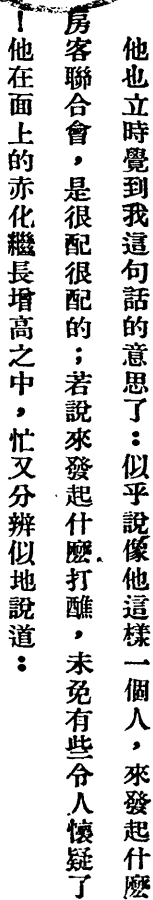 他也立時覺到我這句話的意思了：似乎說像他這樣一個人，來發起什麽
房客聯合會，是很配很配的；若說來發起什麽打醮，未免有些令人懷疑了
！他在面上的赤化繼長增高之中，忙又分辨似地說道：